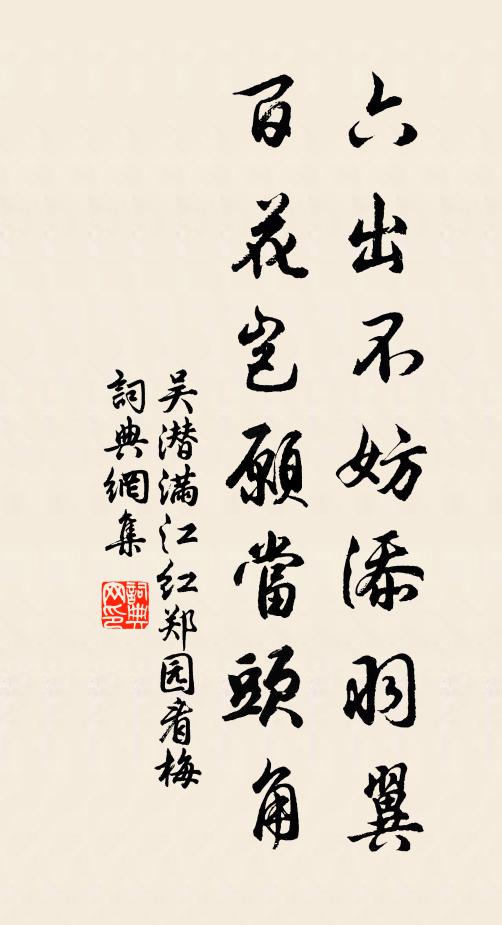 六出不妨添羽翼
百花岂願當頭角
吴潜满江红郑园看梅
詞典網集
詞典
网印